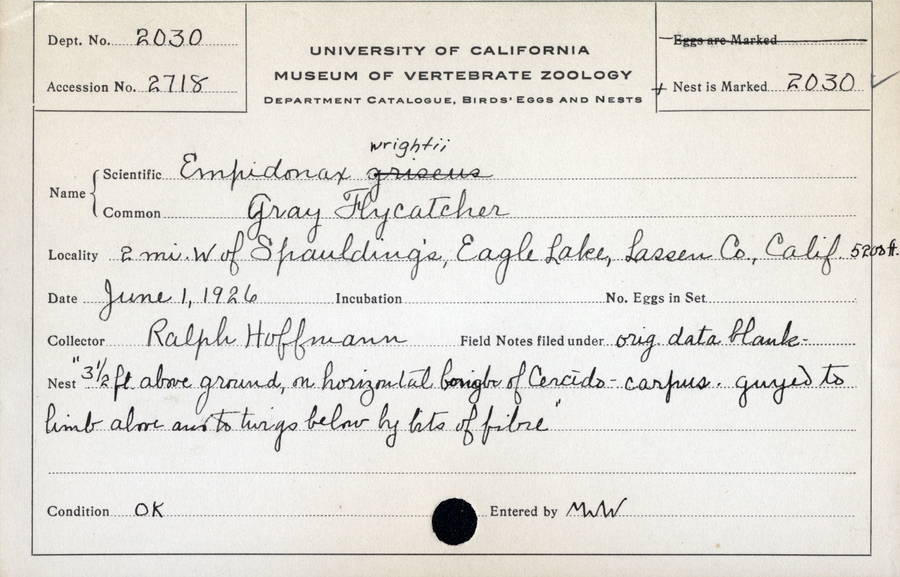 Dept. No. 2030
Accession No. 2718
UNIVERSITY OF CALIFORNIA
MUSEUM OF VERTEBRATE ZOOLOGY
DEPARTMENT CATALOGUE, BIRDS' EGGS AND NESTS
Eggs are Marked
+ Nest is Marked 2030 ✓
wrightii
Name { Scientific Empidonax griseus
Common Gray Flycatcher
Locality 2 mi. W of Spaulding's, Eagle Lake, Lassen Co., Calif. 5200 ft.
Date June 1, 1926 Incubation No. Eggs in Set
Collector Ralph Hoffmann Field Notes filed under orig. data blank-
Nest "3½ ft above ground, on horizontal of Cercido-carpus. guyed to
limb above and to twigs below by bits of fibre"
Condition OK Entered by